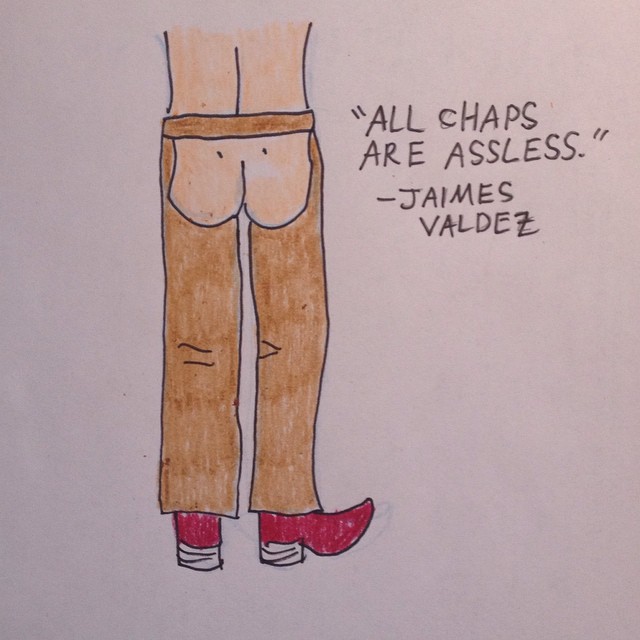 "ALL CHAPS
ARE ASSLESS."
-JAIMES
VALDEZ